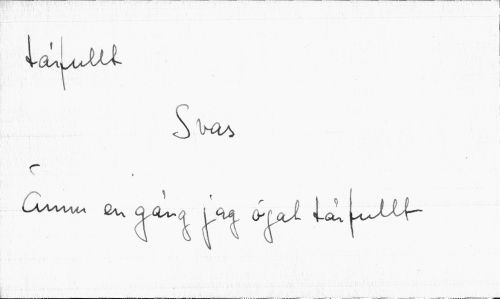 tårfullt
Svas
Ännu en gång jag ögat tårfullt